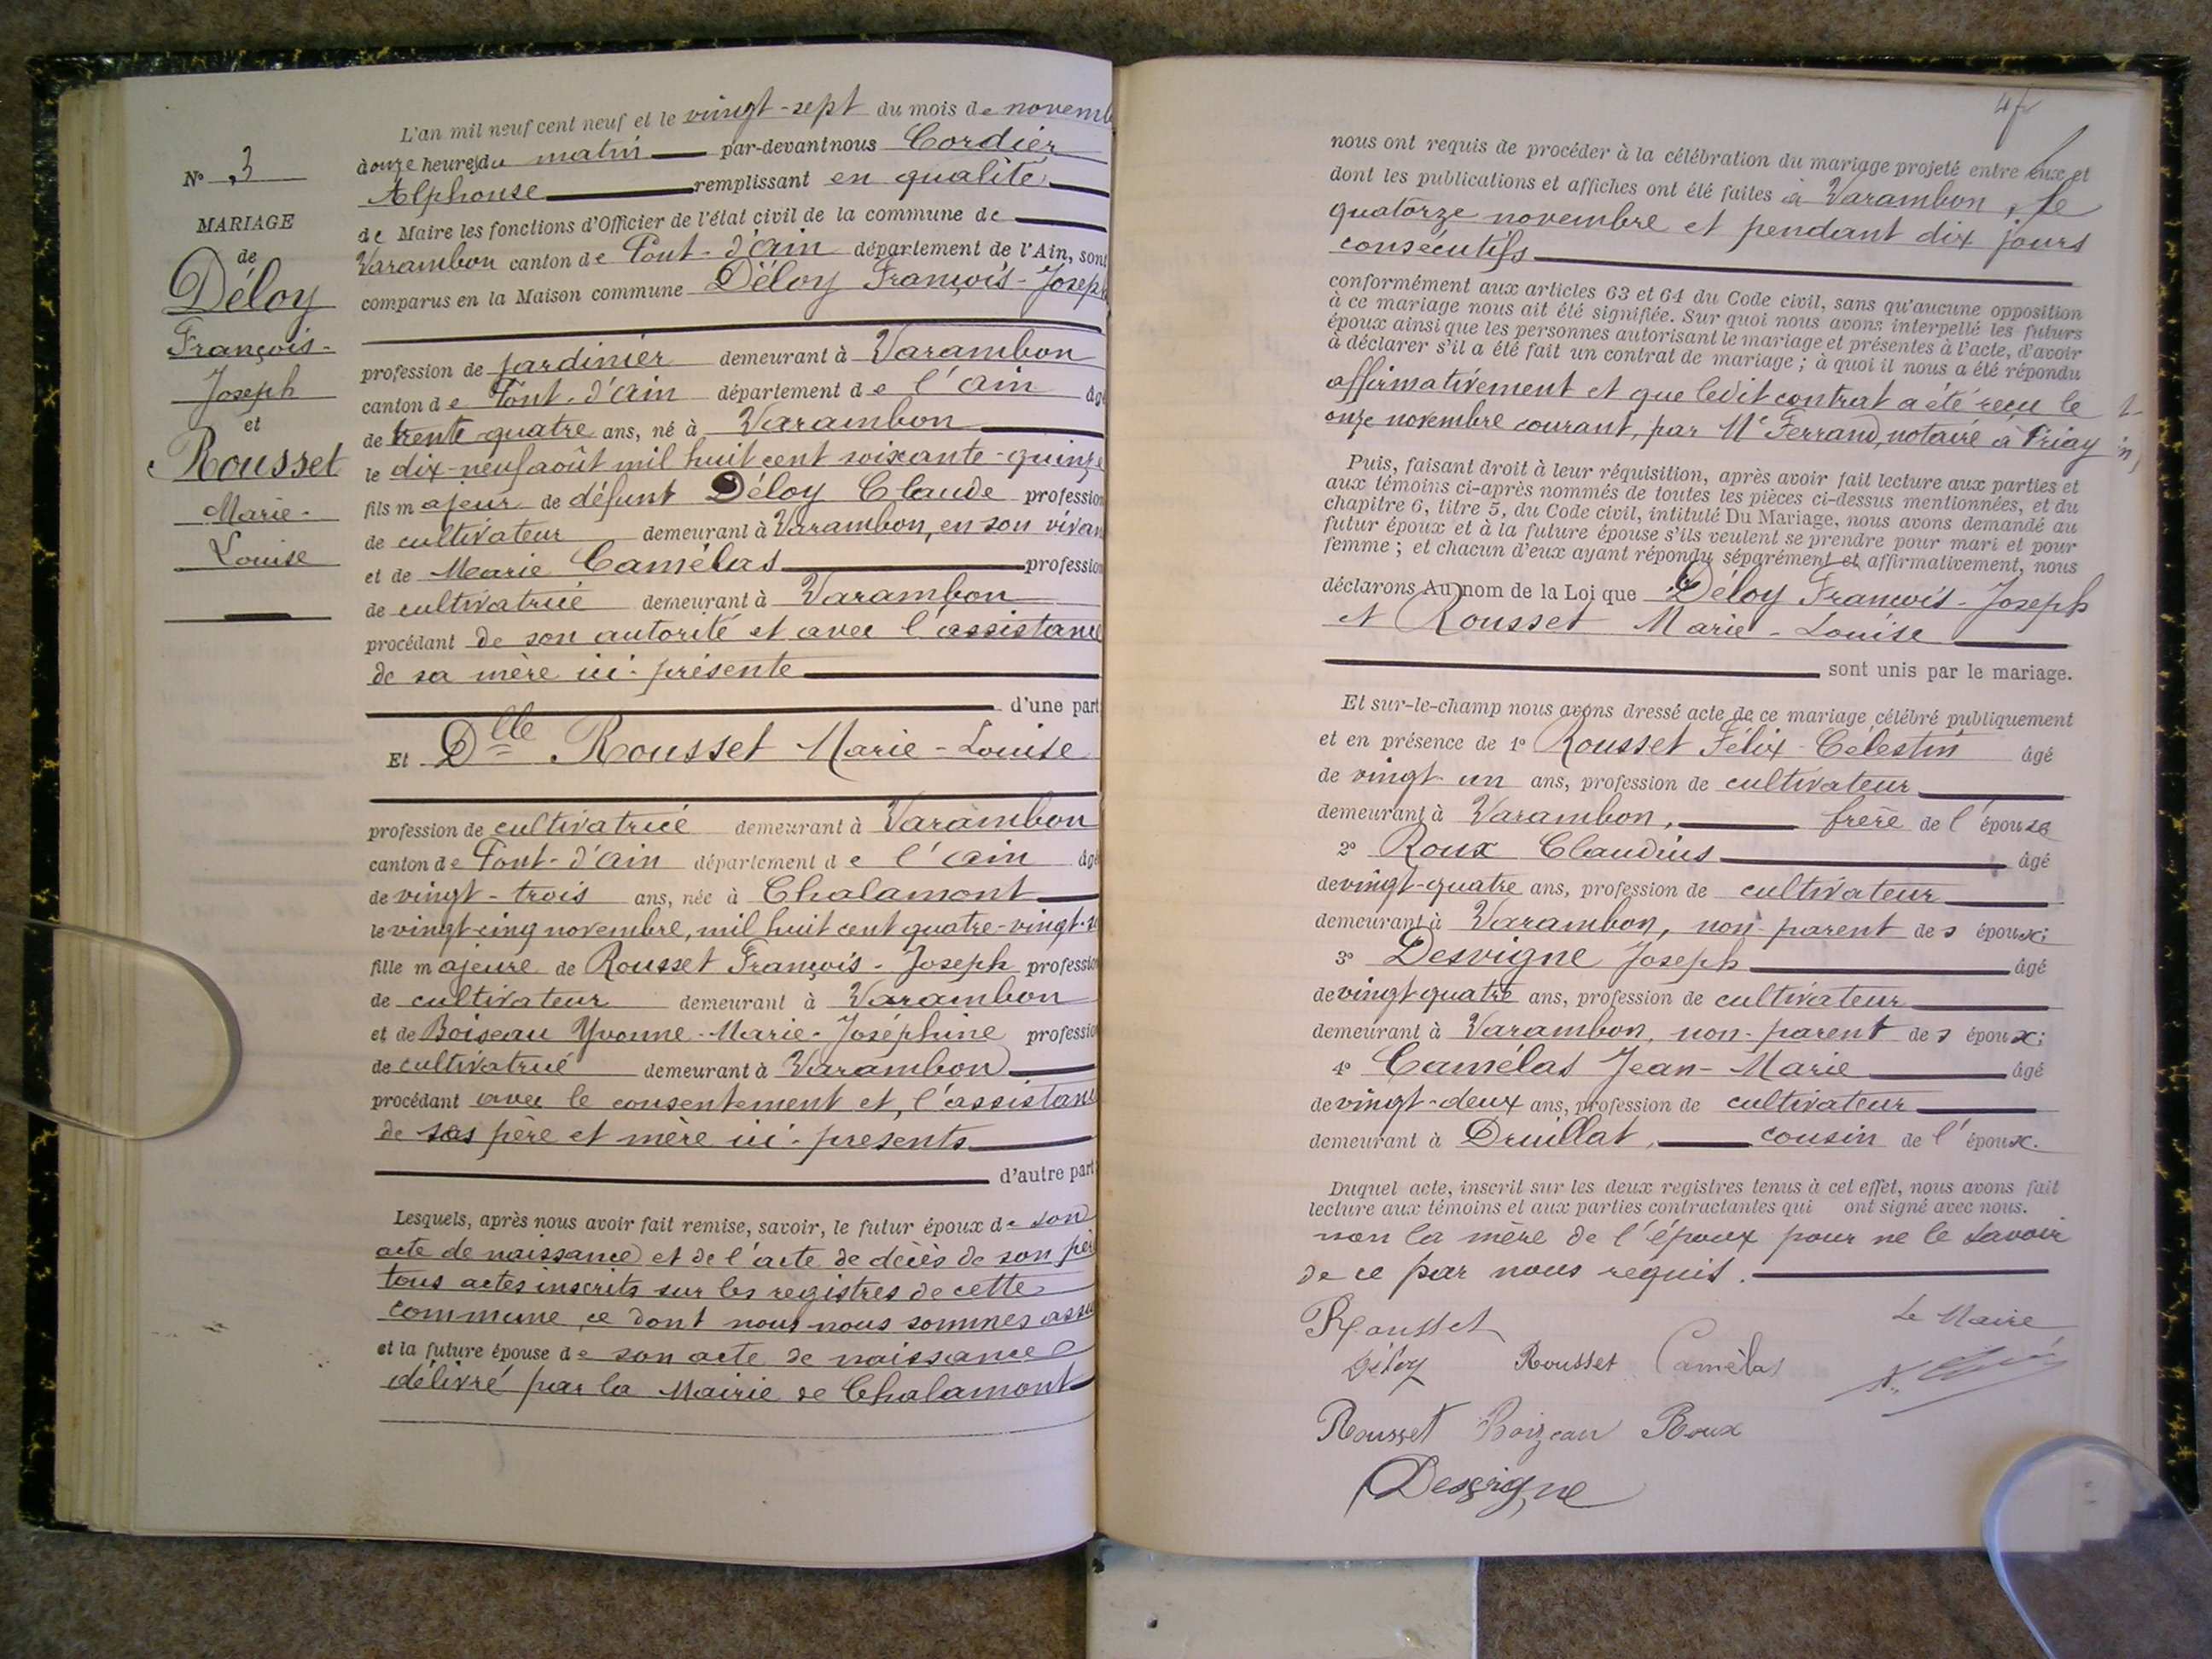 N° 3
MARIAGE
de
Déloy
François-
Joseph
et
Rousset
Marie-
Louise
L'an mil neuf cent neuf et le vingt-sept du mois de novemb
à onze heures du matin par-devant nous Cordier
Alphonse remplissant en qualité
de Maire les fonctions d'Officier de l'état civil de la commune de
Varambon canton de Pont-d'Ain département de l'Ain, sont
comparus en la Maison commune Déloy François-Joseph
profession de jardinier demeurant à Varambon
canton de Pont-d'Ain département de l'Ain âgé
de trente-quatre ans, né à Varambon
le dix-neuf août mil huit cent soixante-quinze
fils majeur de défunt Déloy Claude profession
de cultivateur demeurant à Varambon, en son vivan
et de Marie Camélas profession
de cultivatrice demeurant à Varambon
procédant de son autorité et avec l'assistance
de sa mère ici-présente
d'une part
Et Dlle Rousset Marie-Louise
profession de cultivatrice demeurant à Varambon
canton de Pont-d'Ain département de l'Ain âgé
de vingt-trois ans, née à Chalamont
le vingt-cinq novembre, mil huit cent quatre-vingt-
fille majeure de Rousset François-Joseph profession
de cultivateur demeurant à Varambon
et de Boiseau Yvonne-Marie-Joséphine profession
de cultivatrice demeurant à Varambon
procédant avec le consentement et, l'assistance
de ses père et mère ici-présents
d'autre part
Lesquels, après nous avoir fait remise, savoir, le futur époux de son
acte de naissance et de l'acte de décès de son pèr
tous actes inscrits sur les registres de cette
commune, ce dont nous nous sommes assu
et la future épouse de son acte de naissance
délivré par la Mairie de Chalamont
nous ont requis de procéder à la célébration du mariage projeté entre eux et
dont les publications et affiches ont été faites à Varambon, le
quatorze novembre et pendant dix jours
consécutifs
conformément aux articles 63 et 64 du Code civil, sans qu'aucune opposition
à ce mariage nous ait été signifiée. Sur quoi nous avons interpellé les futurs
époux ainsi que les personnes autorisant le mariage et présentes à l'acte, d'avoir
à déclarer s'il a été fait un contrat de mariage ; à quoi il nous a été répondu
affirmativement et que ledit contrat a été reçu le
onze novembre courant, par Me Ferrand, notaire à Priay
Puis, faisant droit à leur réquisition, après avoir fait lecture aux parties et
aux témoins ci-après nommés de toutes les pièces ci-dessus mentionnées, et du
chapitre 6, titre 5, du Code civil, intitulé Du Mariage, nous avons demandé au
futur époux et à la future épouse s'ils veulent se prendre pour mari et pour
femme ; et chacun d'eux ayant répondu séparément et affirmativement, nous
déclarons Au nom de la Loi que Déloy François-Joseph
et Rousset Marie-Louise
sont unis par le mariage.
Et sur-le-champ nous avons dressé acte de ce mariage célébré publiquement
et en présence de 1° Rousset Félix-Célestin âgé
de vingt-un ans, profession de cultivateur
demeurant à Varambon, frère de l'épouse
2° Roux Claudius âgé
de vingt-quatre ans, profession de cultivateur
demeurant à Varambon, non-parent des époux;
3° Desvigne Joseph âgé
de vingt-quatre ans, profession de cultivateur
demeurant à Varambon, non-parent des époux;
4° Camélas Jean-Marie âgé
de vingt-deux ans, profession de cultivateur
demeurant à Druillat, cousin de l'époux.
Duquel acte, inscrit sur les deux registres tenus à cet effet, nous avons fait
lecture aux témoins et aux parties contractantes qui ont signé avec nous.
non la mère de l'époux pour ne le savoir
de ce par nous requis.
Rousset Le Maire
Déloy Rousset Camélas
Rousset Boizeau Roux
Desvigne